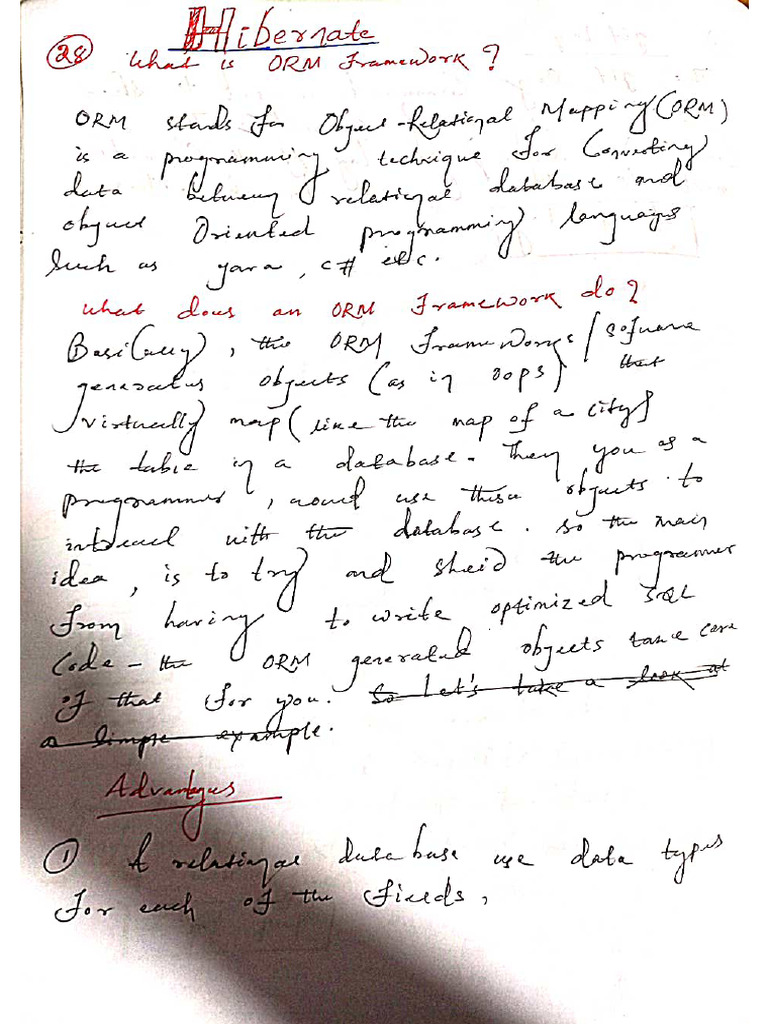 Hibernate
28 What is ORM Framework?
ORM stands for Object-Relational Mapping (ORM)
is a programming technique for Converting
data between relational database and
object Oriented programming languages
Such as java, c# etc.
What does an ORM Framework do?
Basically, the ORM Frameworks/software
generates objects (as in oops) that
virtually map (like the map of a city)
the table in a database. Then you as a
programmer, would use these objects to
interact with the database. So the main
idea, is to try and sheid the programmer
from having to write optimized SQL
Code - the ORM generated objects take care
of that for you. So Let's take a look at
a simple example.
Advantages
① A relational database use data types
for each of the fields,